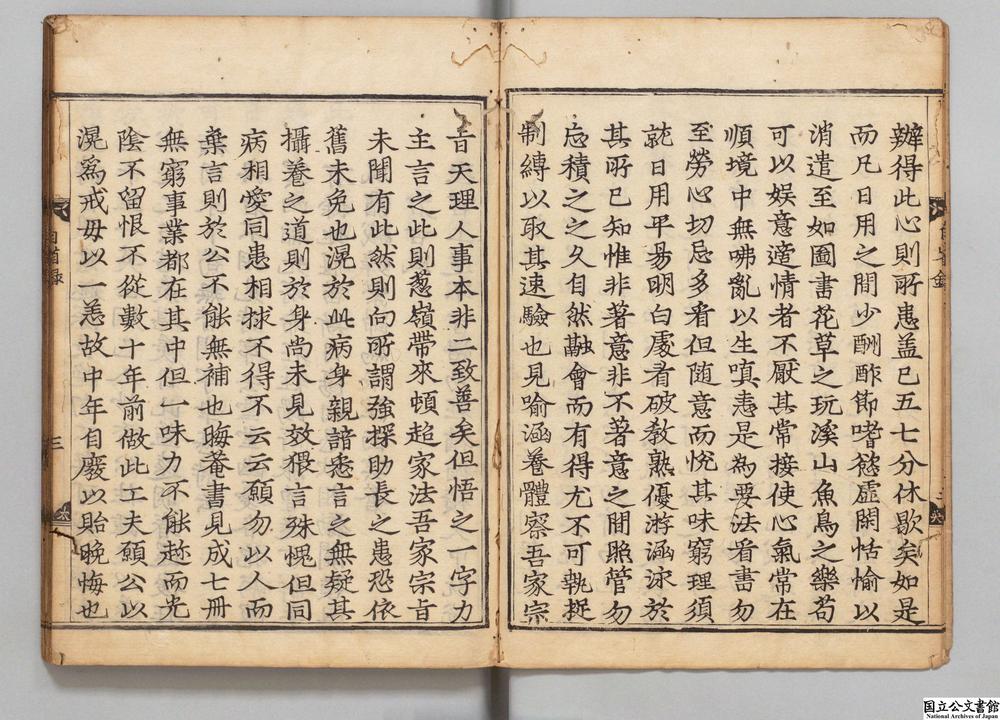 辦得此心則所患盖已五七分休歇矣如是
而凡日用之間少酬酢節嗜慾虛閑恬愉以
消遣至如圖書花草之玩溪山魚鳥之樂苟
可以娛意適情者不厭其常接使心氣常在
順境中無咈亂以生嗔恚是為要法看書勿
至勞心切忌多看但随意而悅其味窮理須
就日用平易明白處看破教熟優游涵泳於
其所已知惟非著意非不著意之間照管勿
忘積之之久自然融會而有得尤不可執捉
制縛以取其速驗也見喻涵養體察吾家宗
旨天理人事本非二致善矣但悟之一字力
主言之此則葱嶺帶來頓超家法吾家宗旨
未聞有此然則向所謂強探助長之患恐依
舊未免也滉於此病身親諳悉言之無疑其
攝養之道則於身尚未見效猥言殊愧但同
病相愛同患相捄不得不云云願勿以人而
棄言則於公不能無補也晦菴書見成七冊
無窮事業都在其中但一味力不能趂而光
陰不留恨不從數十年前做此工夫願公以
滉爲戒毋以一恙故中年自廢以貽晚悔也
自省録
三
國立公文書館
National Archives of Japan